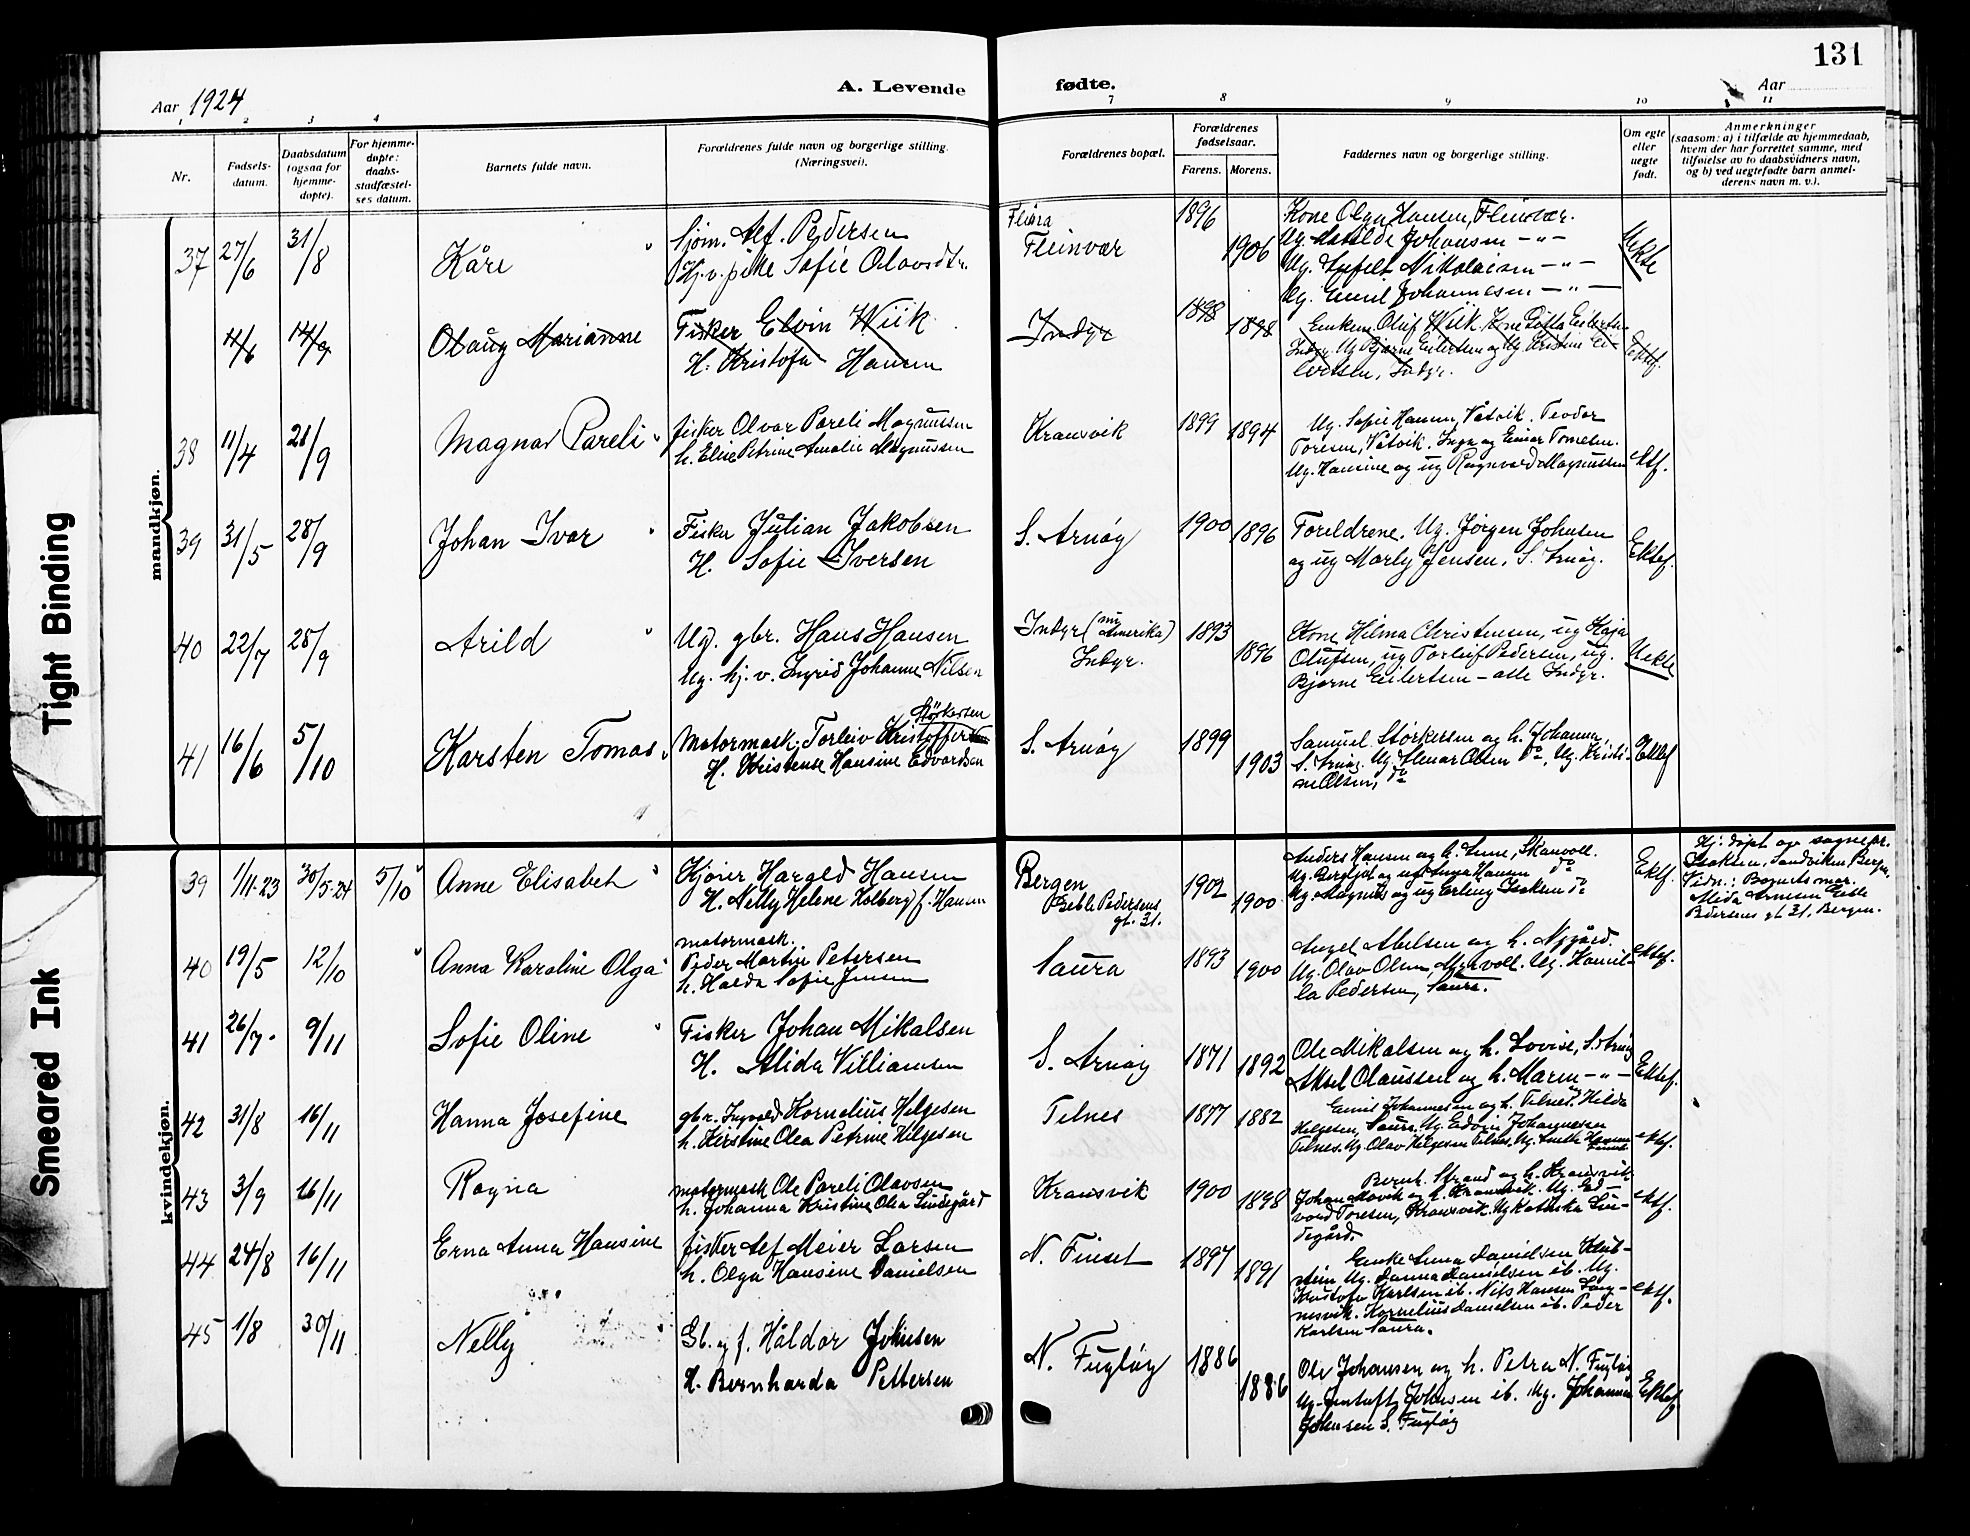 131
Aar 1924
A. Levende
fødte.
Aar
1 2 3 4 7 8 9 10 11
Nr.
Fødsels-
datum.
Daabsdatum
(ogsaa for
hjemme-
døpte).
For hjemme-
døpte:
daabs-
stadfæstel-
ses datum.
Barnets fulde navn.
Forældrenes fulde navn og borgerlige stilling.
(Næringsvei).
Forældrenes bopæl.
Forældrenes
fødselsaar.
Farens. Morens.
Faddernes navn og borgerlige stilling.
Om egte
eller
uegte
født.
Anmerkninger
(saasom: a) i tilfælde av hjemmedaab,
hvem der har forrettet samme, med
tilføielse av to daabsvidners navn,
og b) ved uegtefødte barn anmel-
derens navn m. v.).
mandkjøn.
37 27/6 31/8 Kåre
Sjøm. Alf. Pedersen
Hj.v. pike Sofie Olavsdtr.
Fleinvær
1896 1906
Kone Olga Hansen, Fleinvær.
Ug. Matilde Johansen - " -
Ug. Nikolaisen - " -
Ug. Emil Johannesen - " -
Uekte
11/6 14/9 Olaug Marianne
Fisker Elvin Wiik
H. Kristofa Hansen
Indyr
1898 1898
Enkem. Oluf Wiik. Kone Gitta Eilertsen
Indyr. Ug Bjarne Eilertsen og Ug. Kristine Ei-
lertsen, Indyr.
Ektef.
38 11/4 21/9 Magnar Pareli
fisker Olvar Pareli Magnussen
h. Elise Petrine Amalie Magnussen
Kransvik
1899 1894
Ug. Sofie Hansen, Våtvik. Teodor
Toresen, Våtvik. Inga og Einar Tomesen.
Ug. Hansine og ug Ragnvald Magnussen
ektf.
39 31/5 28/9 Johan Ivar
Fisker Julian Jakobsen
H. Sofie Iversen
S. Arnøy
1900 1896
Foreldrene. Ug. Jørgen Johnsen
og ug Marly Jensen, S. Arnøy.
Ektef.
40 22/7 28/9 Arild
Ug. gbr. Hans Hansen
Ug. hj. v. Ingrid Johanne Nilsen
Indyr (nu Amerika)
Indyr.
1893 1896
Kone Hilma Christensen, ug Kaja
Olufsen, ug Torleif Pedersen, ug.
Bjarne Eilertsen - alle Indyr.
Uekte
41 16/6 5/10 Karsten Tomas
Størkersen
Motormask. Torleiv Kristoffer
H. Kristense Hansine Edvardsen
S. Arnøy
1899 1903
Samuel Størkersen og h. Johanna
S. Arnøy. Ug. Steinar Olsen do, Ug. Kristi-
ne Olsen, do
Ektef
kvindekjøn.
39 1/11-23 30/5-24 5/10 Anne Elisabet
Kjører Harald Hansen
H. Nelly Helene Holberg f. Hansen
Bergen
Beble Pedersens
gt. 31.
1902 1900
Anders Hansen og h. Anne, Skauvoll.
Ug. Bergljot og ug Inga Hansen do
Ug. Magnus og ug Erling Isaksen do
Ektf.
Hj. døpt av sognepr.
Isaksen, Sandviken, Bergen.
Vidn.: Barnets mor.
Alida Arnesen Beble
Pedersens gt 31. Bergen.
40 19/5 12/10 Anna Karoline Olga
motormask.
Peder Martin Petersen
h. Halda Sofie Jensen
Saura
1893 1900
Angel Abelsen og h. Nygård.
Ug. Olav Olsen, Myrvoll. Ug. Kamil-
la Pedersen, Saura.
ektef.
41 26/7 9/11 Sofie Oline
Fisker Johan Mikalsen
H. Alida Villiamsen
S. Arnøy
1871 1892
Ole Mikalsen og h. Lovise, S. Arnøy
Aksel Olaussen og h. Maren - " -
Ektef.
42 31/8 16/11 Hanna Josefine
gbr. Ingvald Kornelius Helgesen
h. Kirstine Olea Petrine Helgesen
Telnes
1877 1882
Johannesen og h. Telnes. Hilda
Helgesen, Saura. Ug. Edvin Johannesen
Telnes. Ug Olav Helgesen Telnes. Ug. Hansen
ektf.
43 3/9 16/11 Ragna
motormask Ole Pareli Olavsen
h. Johanna Kristine Olea Lindegård
Kransvik
1900 1898
Bernt Strand og h. Kransvik.
Johan Movik og h. Kransvik. Ug. Ed-
vard Toresen, Kransvik. Ug Katinka Lin-
degård.
ektf.
44 24/8 16/11 Erna Anna Hansine
fisker Alf Meier Larsen
h. Olga Hansine Danielsen
N. Finset
1897 1891
Enke Anna Danielsen Kub-
stein Ug. Danna Danielsen ib. Ug.
Kristofa Karlsen ib. Nils Hansen Lang-
nesvik. Kornelius Danielsen ib. Peder
Karlsen Saura.
ektf.
45 1/8 30/11 Nelly
Gb. og f. Håldor Johnsen
H. Bernharda Pettersen
N. Fugløy
1886 1886
Ole Johansen og h. Petra N. Fugløy
Ug. Johnsen ib. Ug. Johannes
Johnsen S. Fugløy
Ektef
Tight Binding
Smeared Ink